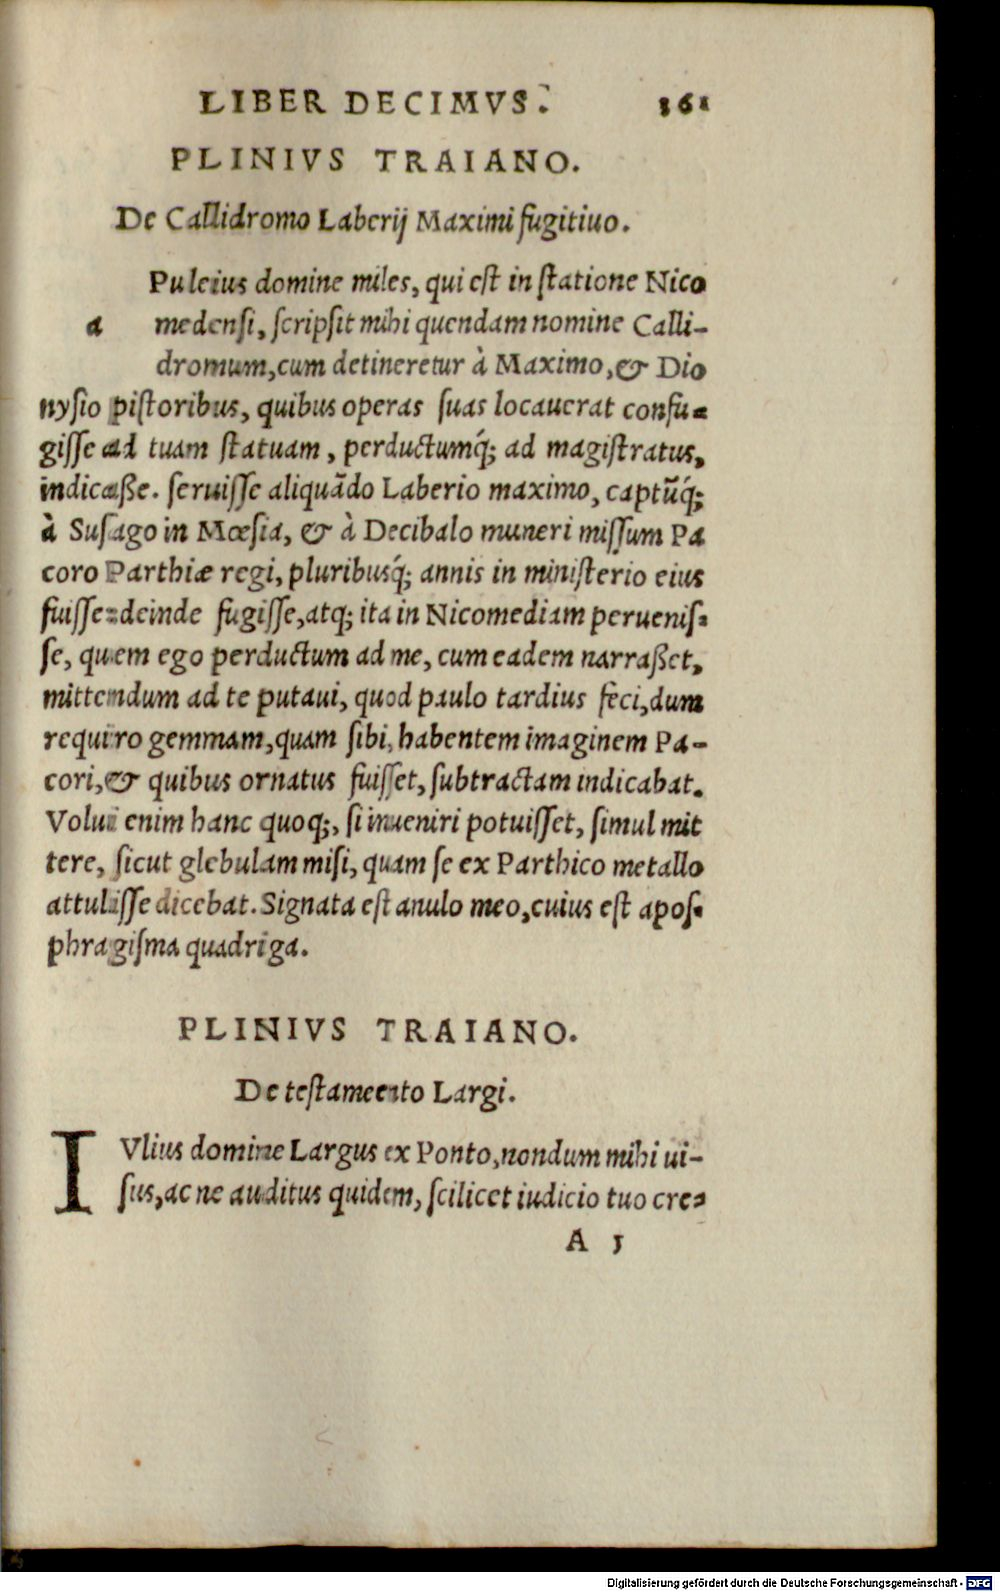 LIBER DECIMVS. 361
PLINIVS TRAIANO.
De Callidromo Laberij Maximi fugitiuo.
Puleius domine miles, qui est in statione Nico
a medensi, scripsit mihi quendam nomine Calli-
dromum, cum detineretur à Maximo, & Dio
nysio pistoribus, quibus operas suas locauerat confu-
gisse ad tuam statuam, perductumq́; ad magistratus,
indicasse. seruisse aliquãdo Laberio maximo, captũq́;
à Susago in Mœsia, & à Decibalo muneri missum Pa
coro Parthiæ regi, pluribusq́; annis in ministerio eius
fuisse: deinde fugisse, atq; ita in Nicomediam peruenis-
se, quem ego perductum ad me, cum eadem narraßet,
mittendum ad te putaui, quod paulo tardius feci, dum
requiro gemmam, quam sibi, habentem imaginem Pa-
cori, & quibus ornatus fuisset, subtractam indicabat.
Volui enim hanc quoq;, si inueniri potuisset, simul mit
tere, sicut glebulam misi, quam se ex Parthico metallo
attulisse dicebat. Signata est anulo meo, cuius est apos-
phragisma quadriga.
PLINIVS TRAIANO.
De testameento Largi.
IVlius domine Largus ex Ponto, nondum mihi ui-
sus, ac ne auditus quidem, scilicet iudicio tuo cre-
A 1
Digitalisierung gefördert durch die Deutsche Forschungsgemeinschaft - DFG